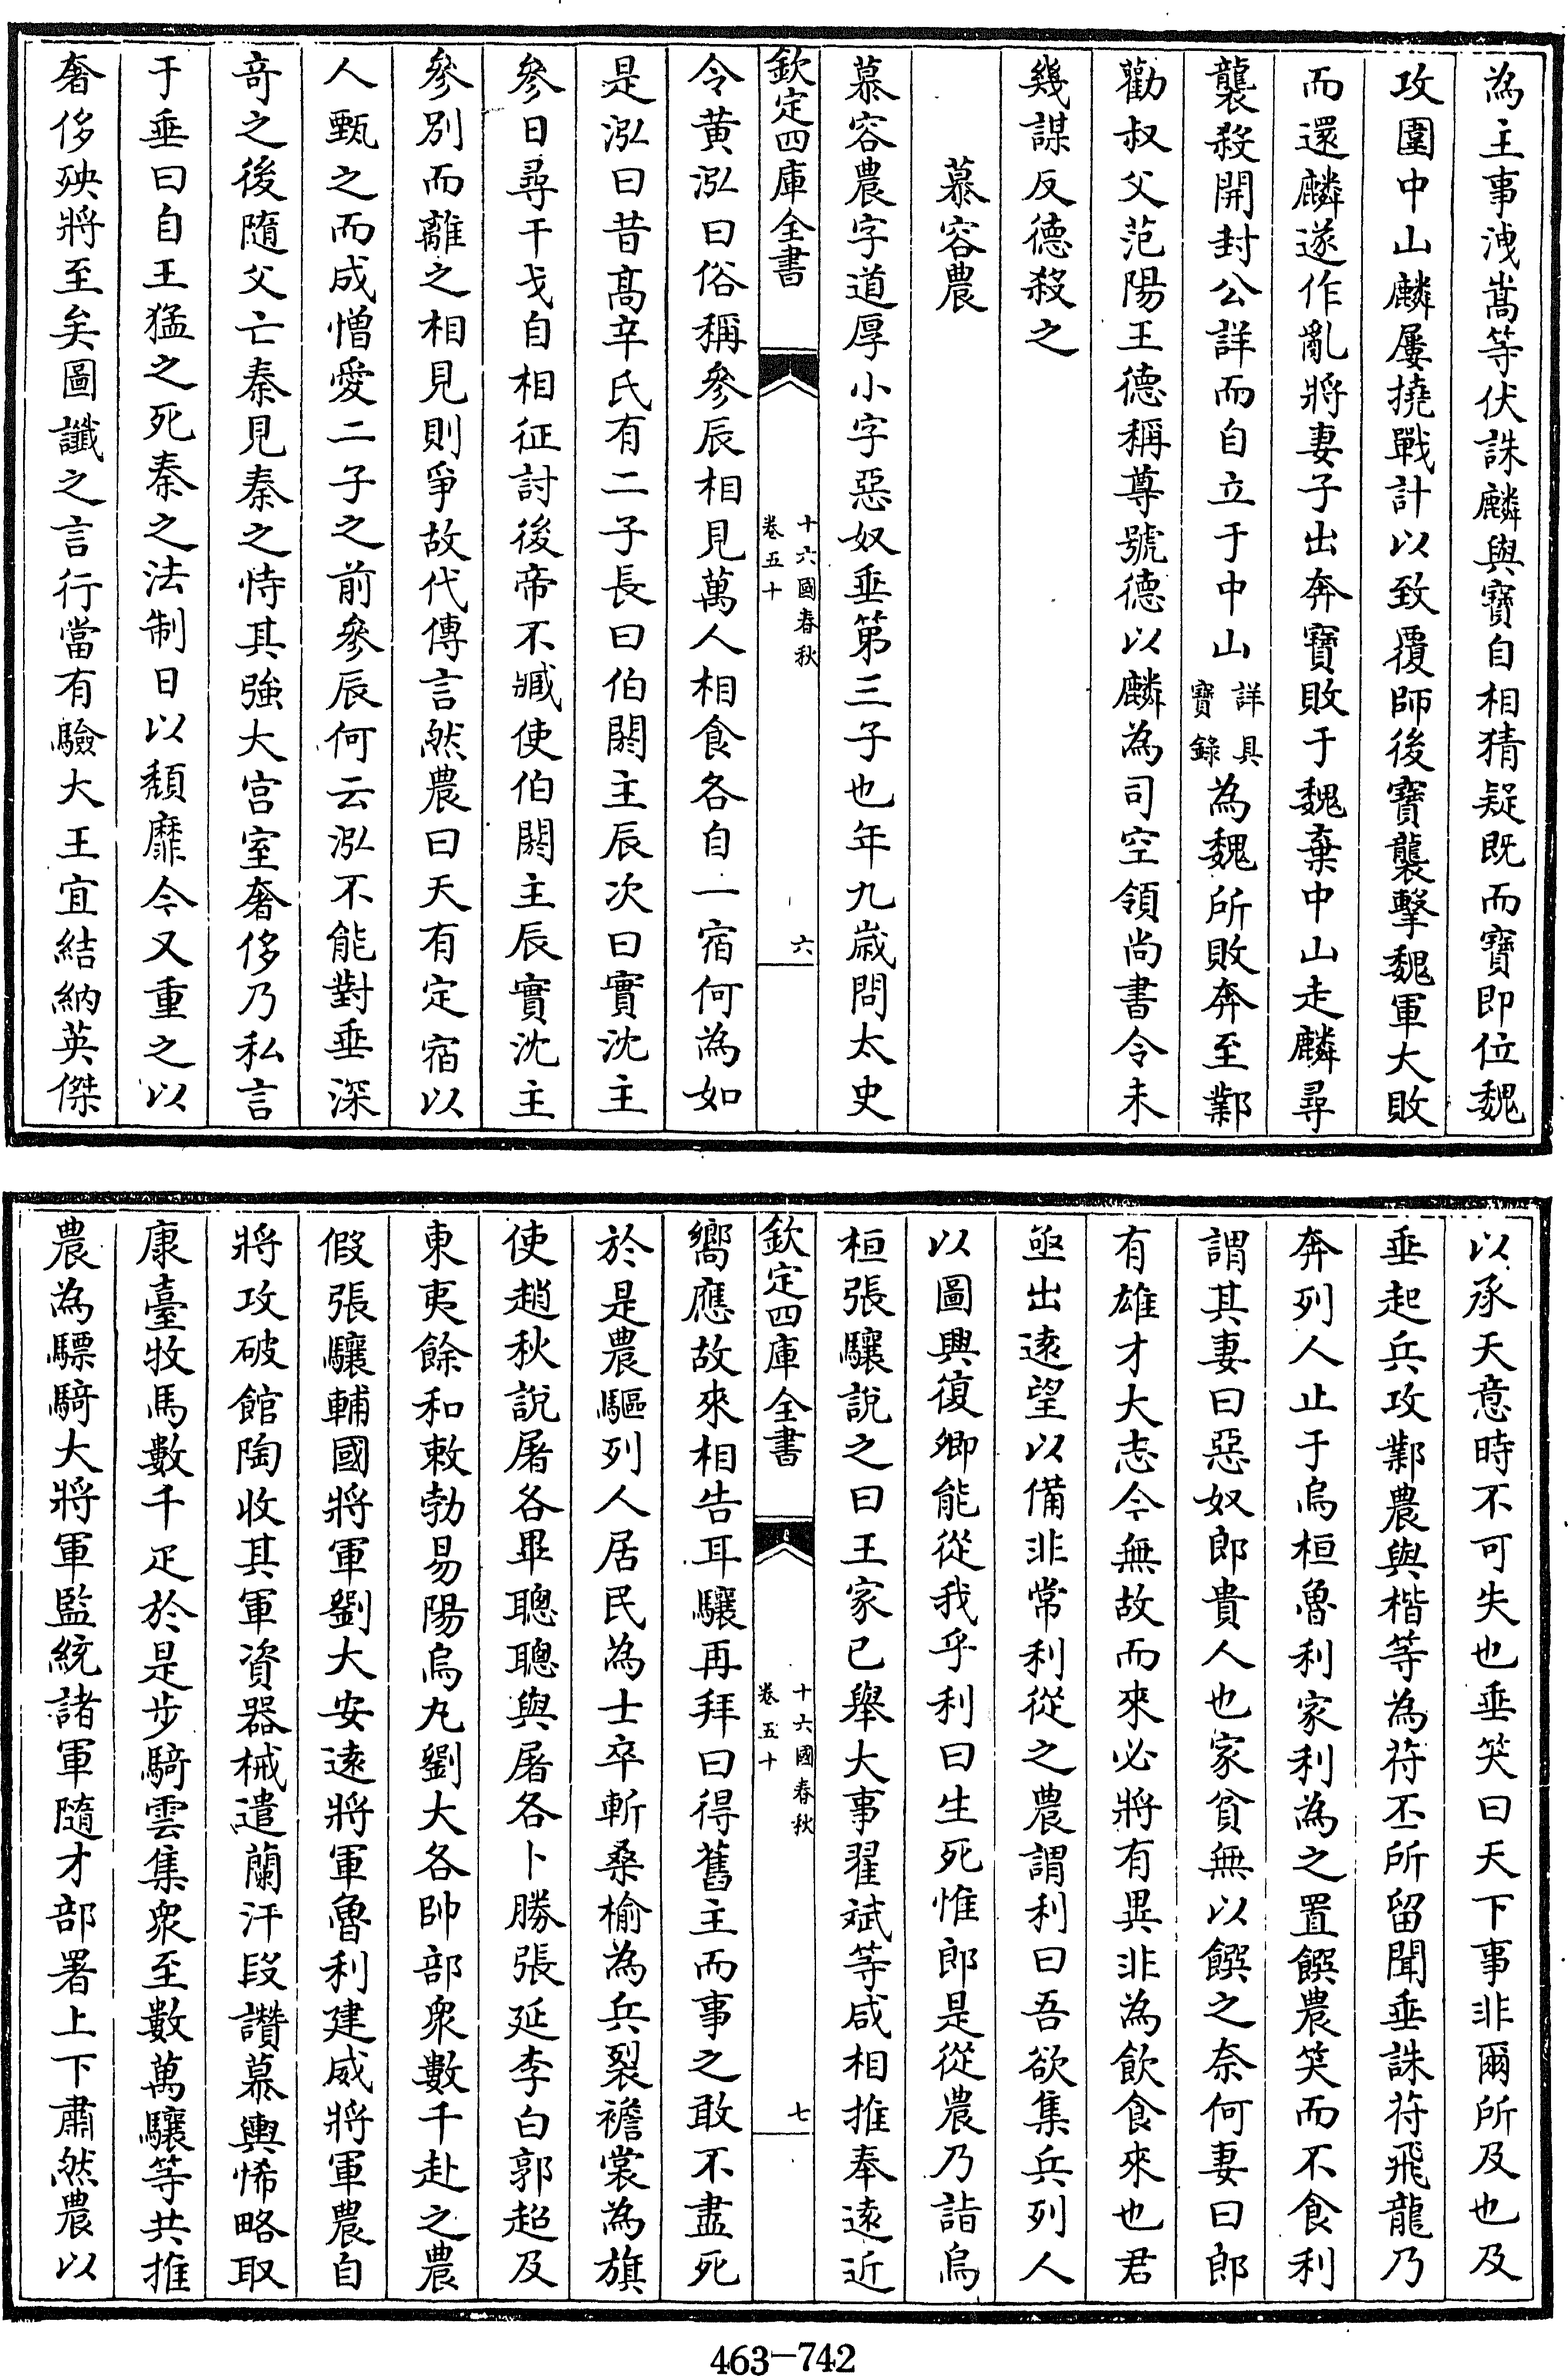 為主事洩嵩等伏誅麟與寶自相猜疑既而寶即位魏
攻圍中山麟屢撓戰計以致覆師後寶襲擊魏軍大敗
而還麟遂作亂將妻子出奔寶敗于魏棄中山走麟尋
襲殺開封公詳而自立于中山詳具寶錄為魏所敗奔至鄴
勸叔父范陽王德稱尊號德以麟為司空領尚書令未
幾謀反德殺之
慕容農
慕容農字道厚小字惡奴垂第三子也年九歲問太史
欽定四庫全書
十六國春秋
卷五十
六
令黃泓曰俗稱參辰相見萬人相食各自一宿何為如
是泓曰昔高辛氏有二子長曰伯閼主辰次曰實沈主
參日尋干戈自相征討後帝不臧使伯閼主辰實沈主
參別而離之相見則爭故代傳言然農曰天有定宿以
人甄之而成憎愛二子之前參辰何云泓不能對垂深
奇之後隨父亡秦見秦之恃其強大宮室奢侈乃私言
于垂曰自王猛之死秦之法制日以頽靡今又重之以
奢侈殃將至矣圖讖之言行當有驗大王宜結納英傑
以承天意時不可失也垂笑曰天下事非爾所及也及
垂起兵攻鄴農與楷等為苻丕所留聞垂誅苻飛龍乃
奔列人止于烏桓魯利家利為之置饌農笑而不食利
謂其妻曰惡奴郎貴人也家貧無以饌之奈何妻曰郎
有雄才大志今無故而來必將有異非為飲食來也君
亟出遠望以備非常利從之農謂利曰吾欲集兵列人
以圖興復卿能從我乎利曰生死惟郎是從農乃詣烏
桓張驤說之曰王家已舉大事翟斌等咸相推奉遠近
欽定四庫全書
十六國春秋
卷五十
七
嚮應故來相告耳驤再拜曰得舊主而事之敢不盡死
於是農驅列人居民為士卒斬桑榆為兵裂襜裳為旗
使趙秋說屠各畢聰聰與屠各卜勝張延李白郭超及
東夷餘和敕勃易陽烏丸劉大各帥部衆數千赴之農
假張驤輔國將軍劉大安遠將軍魯利建威將軍農自
將攻破館陶收其軍資器械遣蘭汗段讚慕輿悕略取
康臺牧馬數千疋於是步騎雲集衆至數萬驤等共推
農為驃騎大將軍監統諸軍隨才部署上下肅然農以
463-742